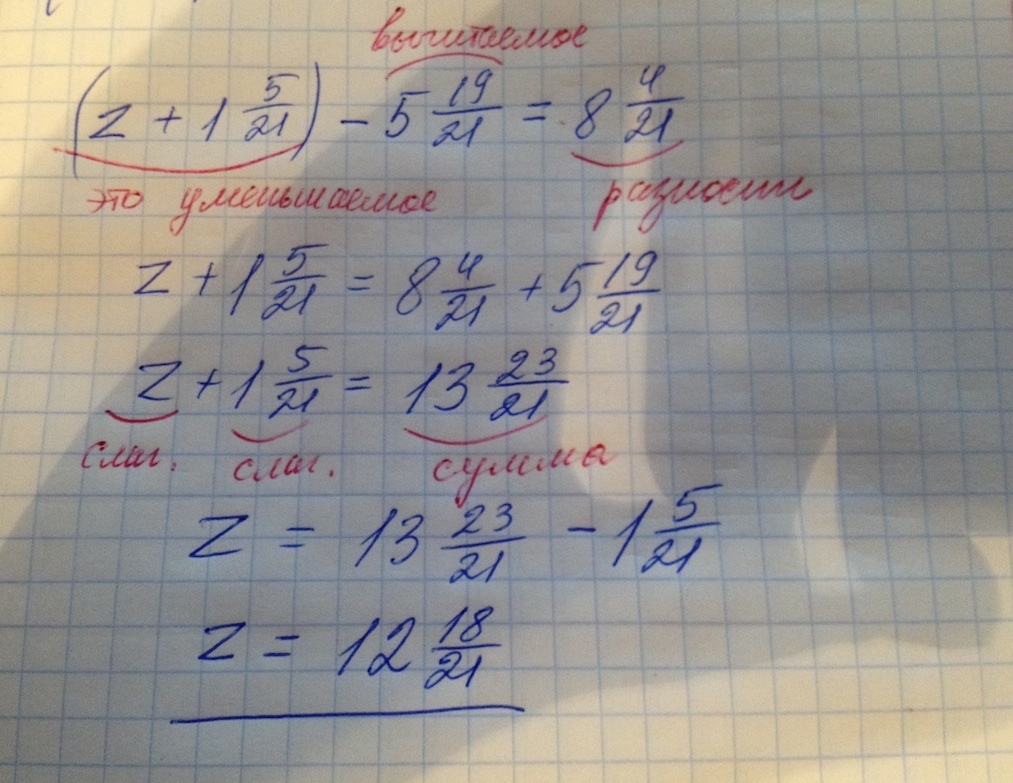 вычитаемое
(z + 1 5/21) - 5 19/21 = 8 4/21
это уменьшаемое разность
z + 1 5/21 = 8 4/21 + 5 19/21
z + 1 5/21 = 13 23/21
слаг. слаг. сумма
z = 13 23/21 - 1 5/21
z = 12 18/21